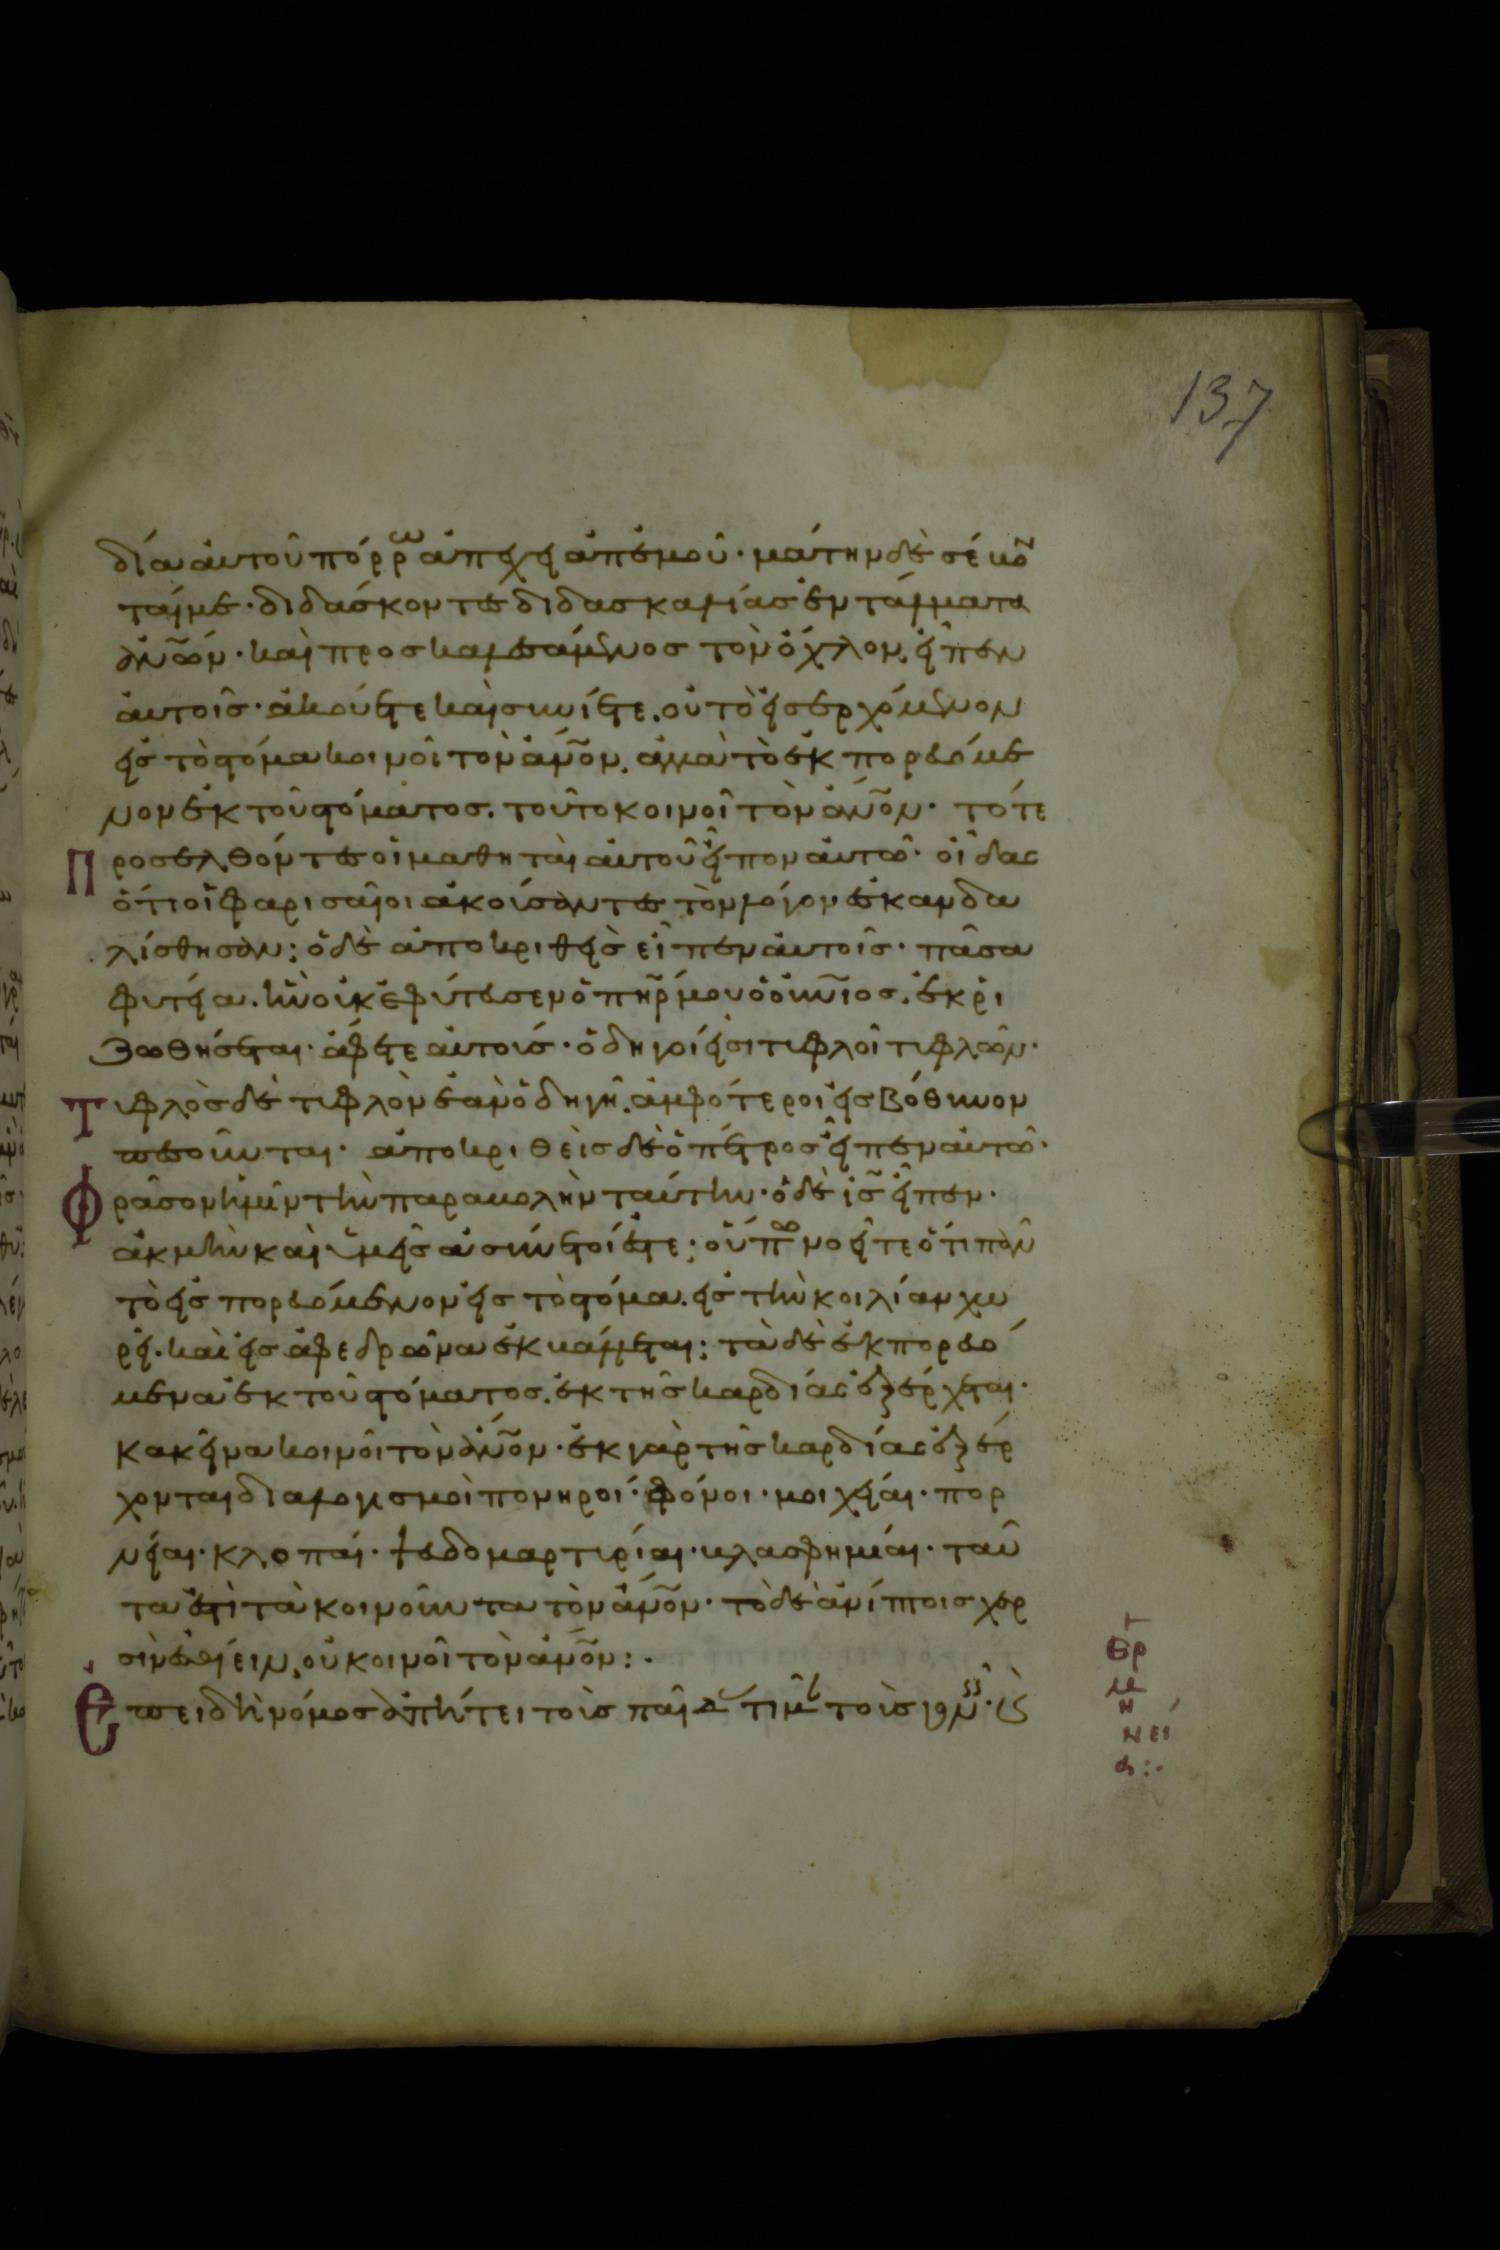 137
δία αὐτοῦ πόρρω ἀπέχει ἀπ' ἐμοῦ· μάτην δὲ σέβον
ταί με· διδάσκοντες διδασκαλίας ἐντάλματα
ἀνῶν· καὶ προσκαλεσάμενος τὸν ὄχλον, εἶπεν
αὐτοῖς· ἀκούετε καὶ συνίετε. οὐ τὸ εἰσερχόμενον
εἰς τὸ στόμα κοινοῖ τὸν ἀνον. ἀλλὰ τὸ ἐκπορευόμε
νον ἐκ τοῦ στόματος. τοῦτο κοινοῖ τὸν ἀνον· τότε
Προσελθόντες οἱ μαθηταὶ αὐτοῦ εἶπον αὐτῶ· οἶδας
ὅτι οἱ φαρισαῖοι ἀκούσαντες τὸν λόγον ἐσκανδα
λίσθησαν; ὁ δὲ ἀποκριθεὶς εἶπεν αὐτοῖς· πᾶσα
φυτεία. ἣν οὐκ ἐφύτευσεν ὁ πηρ μου ὁ οὐνιος. ἐκρι
ζωθήσεται· ἄφετε αὐτούς· ὁδηγοί εἰσι τυφλοὶ τυφλῶν·
Τυφλὸς δὲ τυφλὸν ἐὰν ὁδηγῆ, ἀμφότεροι εἰς βόθυνον
πεσοῦνται· ἀποκριθεὶς δὲ ὁ πέτρος εἶπεν αὐτῶ·
Φράσον ἡμῖν τὴν παραβολὴν ταύτην· ὁ δὲ ις εἶπεν·
ἀκμὴν καὶ ὑμεῖς ἀσύνετοί ἐστε; οὔπω νοεῖτε ὅτι πᾶν
τὸ εἰσπορευόμενον εἰς τὸ στόμα. εἰς τὴν κοιλίαν χω
ρεῖ. καὶ εἰς ἀφεδρῶνα ἐκβάλλεται; τὰ δὲ ἐκπορευό
μενα ἐκ τοῦ στόματος. ἐκ τῆς καρδίας ἐξέρχεται·
κακεῖνα κοινοῖ τὸν ἀνον· ἐκ γὰρ τῆς καρδίας ἐξέρ
χονται διαλογισμοὶ πονηροί· φόνοι· μοιχεῖαι· πορ
νεῖαι· κλοπαί· ψευδομαρτυρίαι· βλασφημίαι· ταῦ
τα ἐστὶ τὰ κοινοῦντα τὸν ἀνον· τὸ δὲ ἀνίπτοις χερ
σὶν φαγεῖν, οὐ κοινοῖ τὸν ἀνον:·
Ἐπειδὴ νόμος ἀπήτει τοὺς τοὺς
ερ
μ
η
νεί
α:·